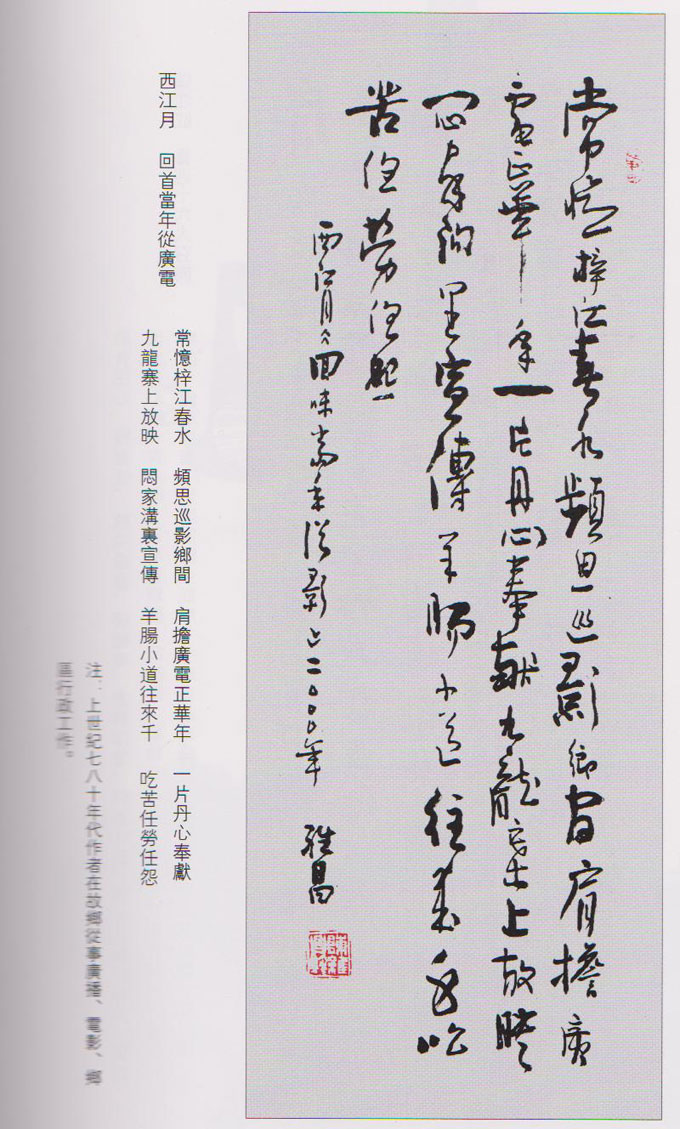 常憶梓江春水頻思巡影鄉間肩擔廣
電正華年一片丹心奉獻九龍寨上放映
悶家溝里宣傳羊腸小道往来千吃
苦任勞任怨
西江月回味當年從影二〇〇〇年 雅昌
西江月 回首當年從廣電
常憶梓江春水 頻思巡影鄉間 肩擔廣電正華年 一片丹心奉獻
九龍寨上放映 悶家溝裏宣傳 羊腸小道往來千 吃苦任勞任怨
注：上世紀七八十年代作者在故鄉從事廣播、電影、鄉
區行政工作。